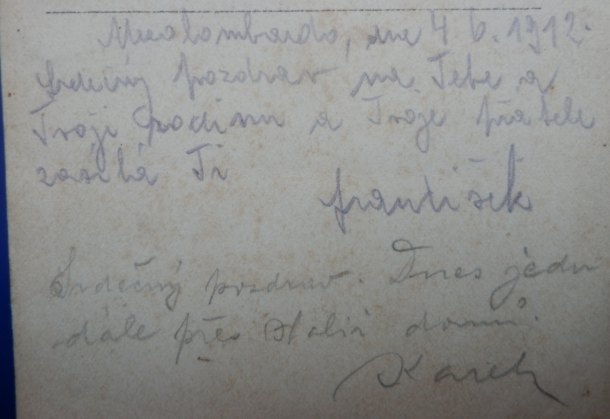 Mezolombardo, dne 4 6. 1912.
Srdečný pozdrav na Tebe a
Tvoji rodinu a Tvoje přátele
zasílá Ti
František
Srdečný pozdrav. Dnes jedu
dále přes Italii domů.
Karel